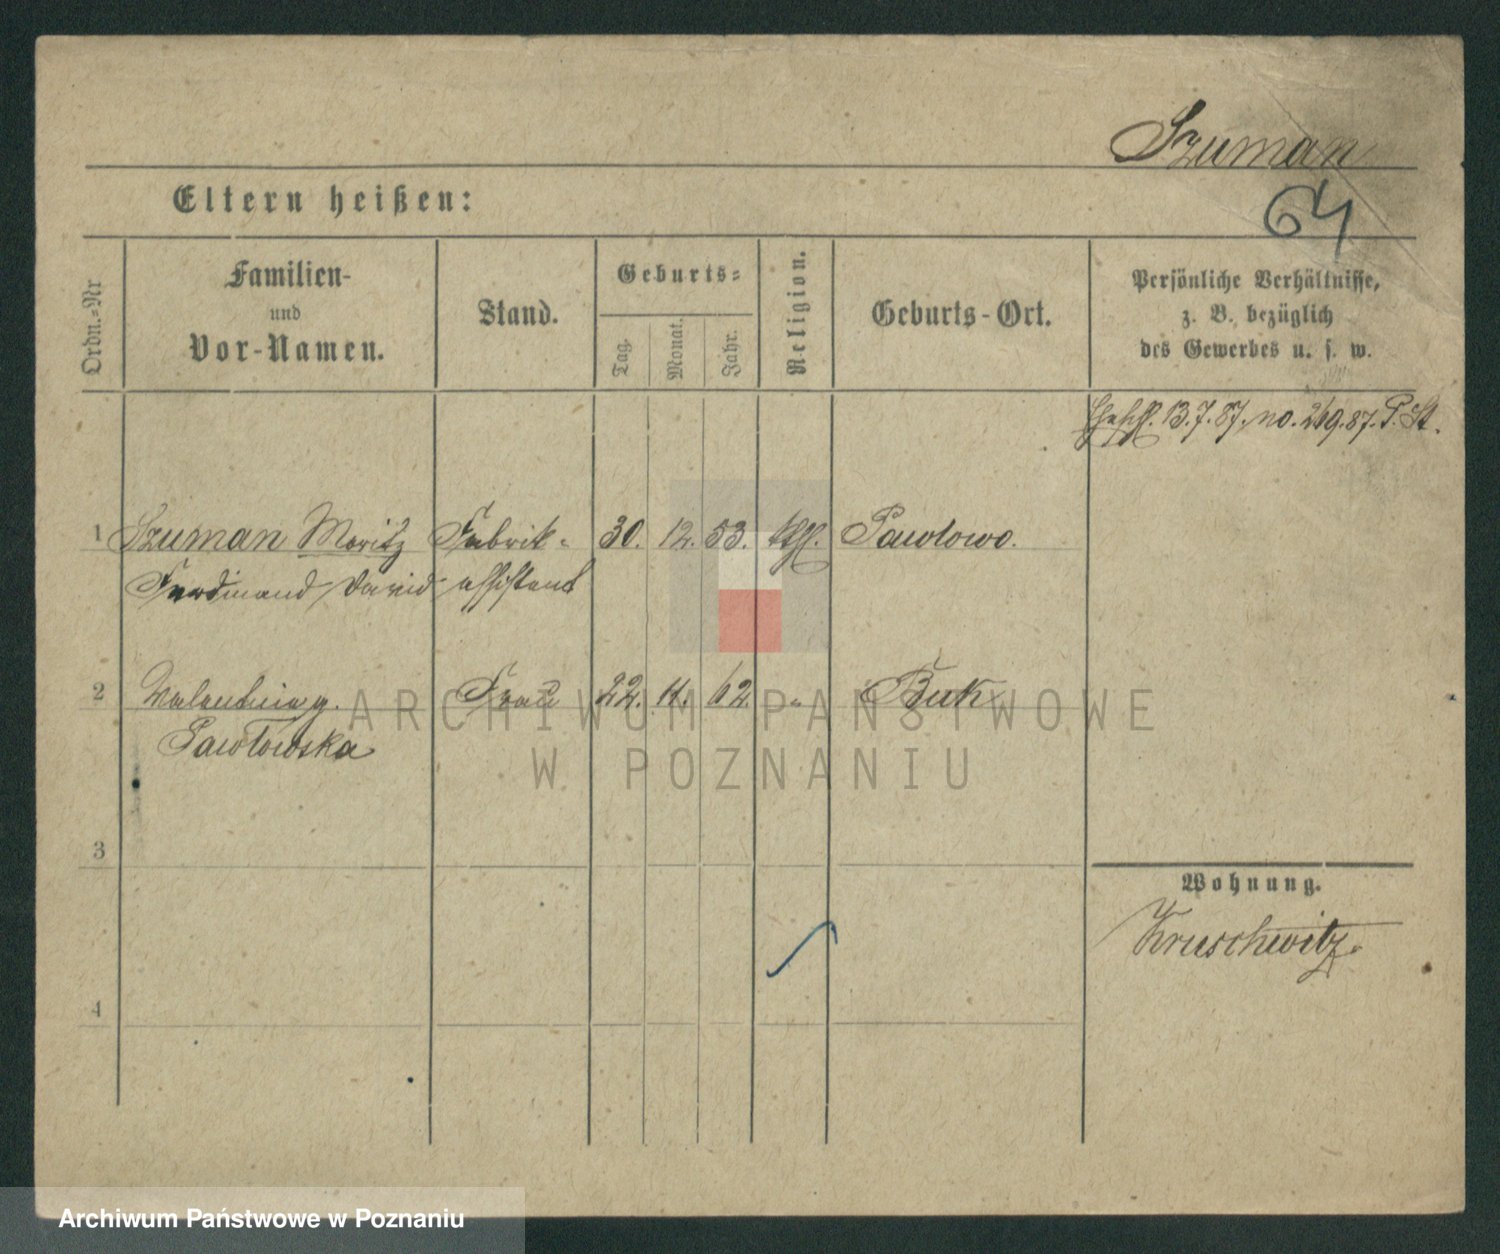 Szuman
64
Eltern heißen:
Ordn.-Nr
Familien-
und
Vor-Namen.
Stand.
Geburts-
Tag.
Monat.
Jahr.
Religion.
Geburts-Ort.
Persönliche Verhältnisse,
z. B. bezüglich
des Gewerbes u. s. w.
13.7.87. no. 249.87. P. St.
1 Szuman Moritz Fabrik- 30. 12. 53. kth. Pawlowo.
Ferdinand David assistent
2 Valentina g. Frau 22. 11. 62. " Buk
Pawłowska
ARCHIWUM PAŃSTWOWE
W POZNANIU
3
Wohnung.
Kruschwitz.
4
Archiwum Państwowe w Poznaniu